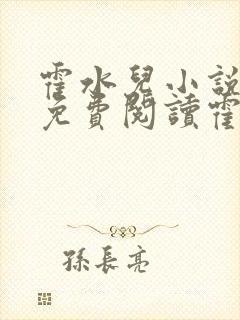 霍水兒小說
免費閱讀霍
孫長亮